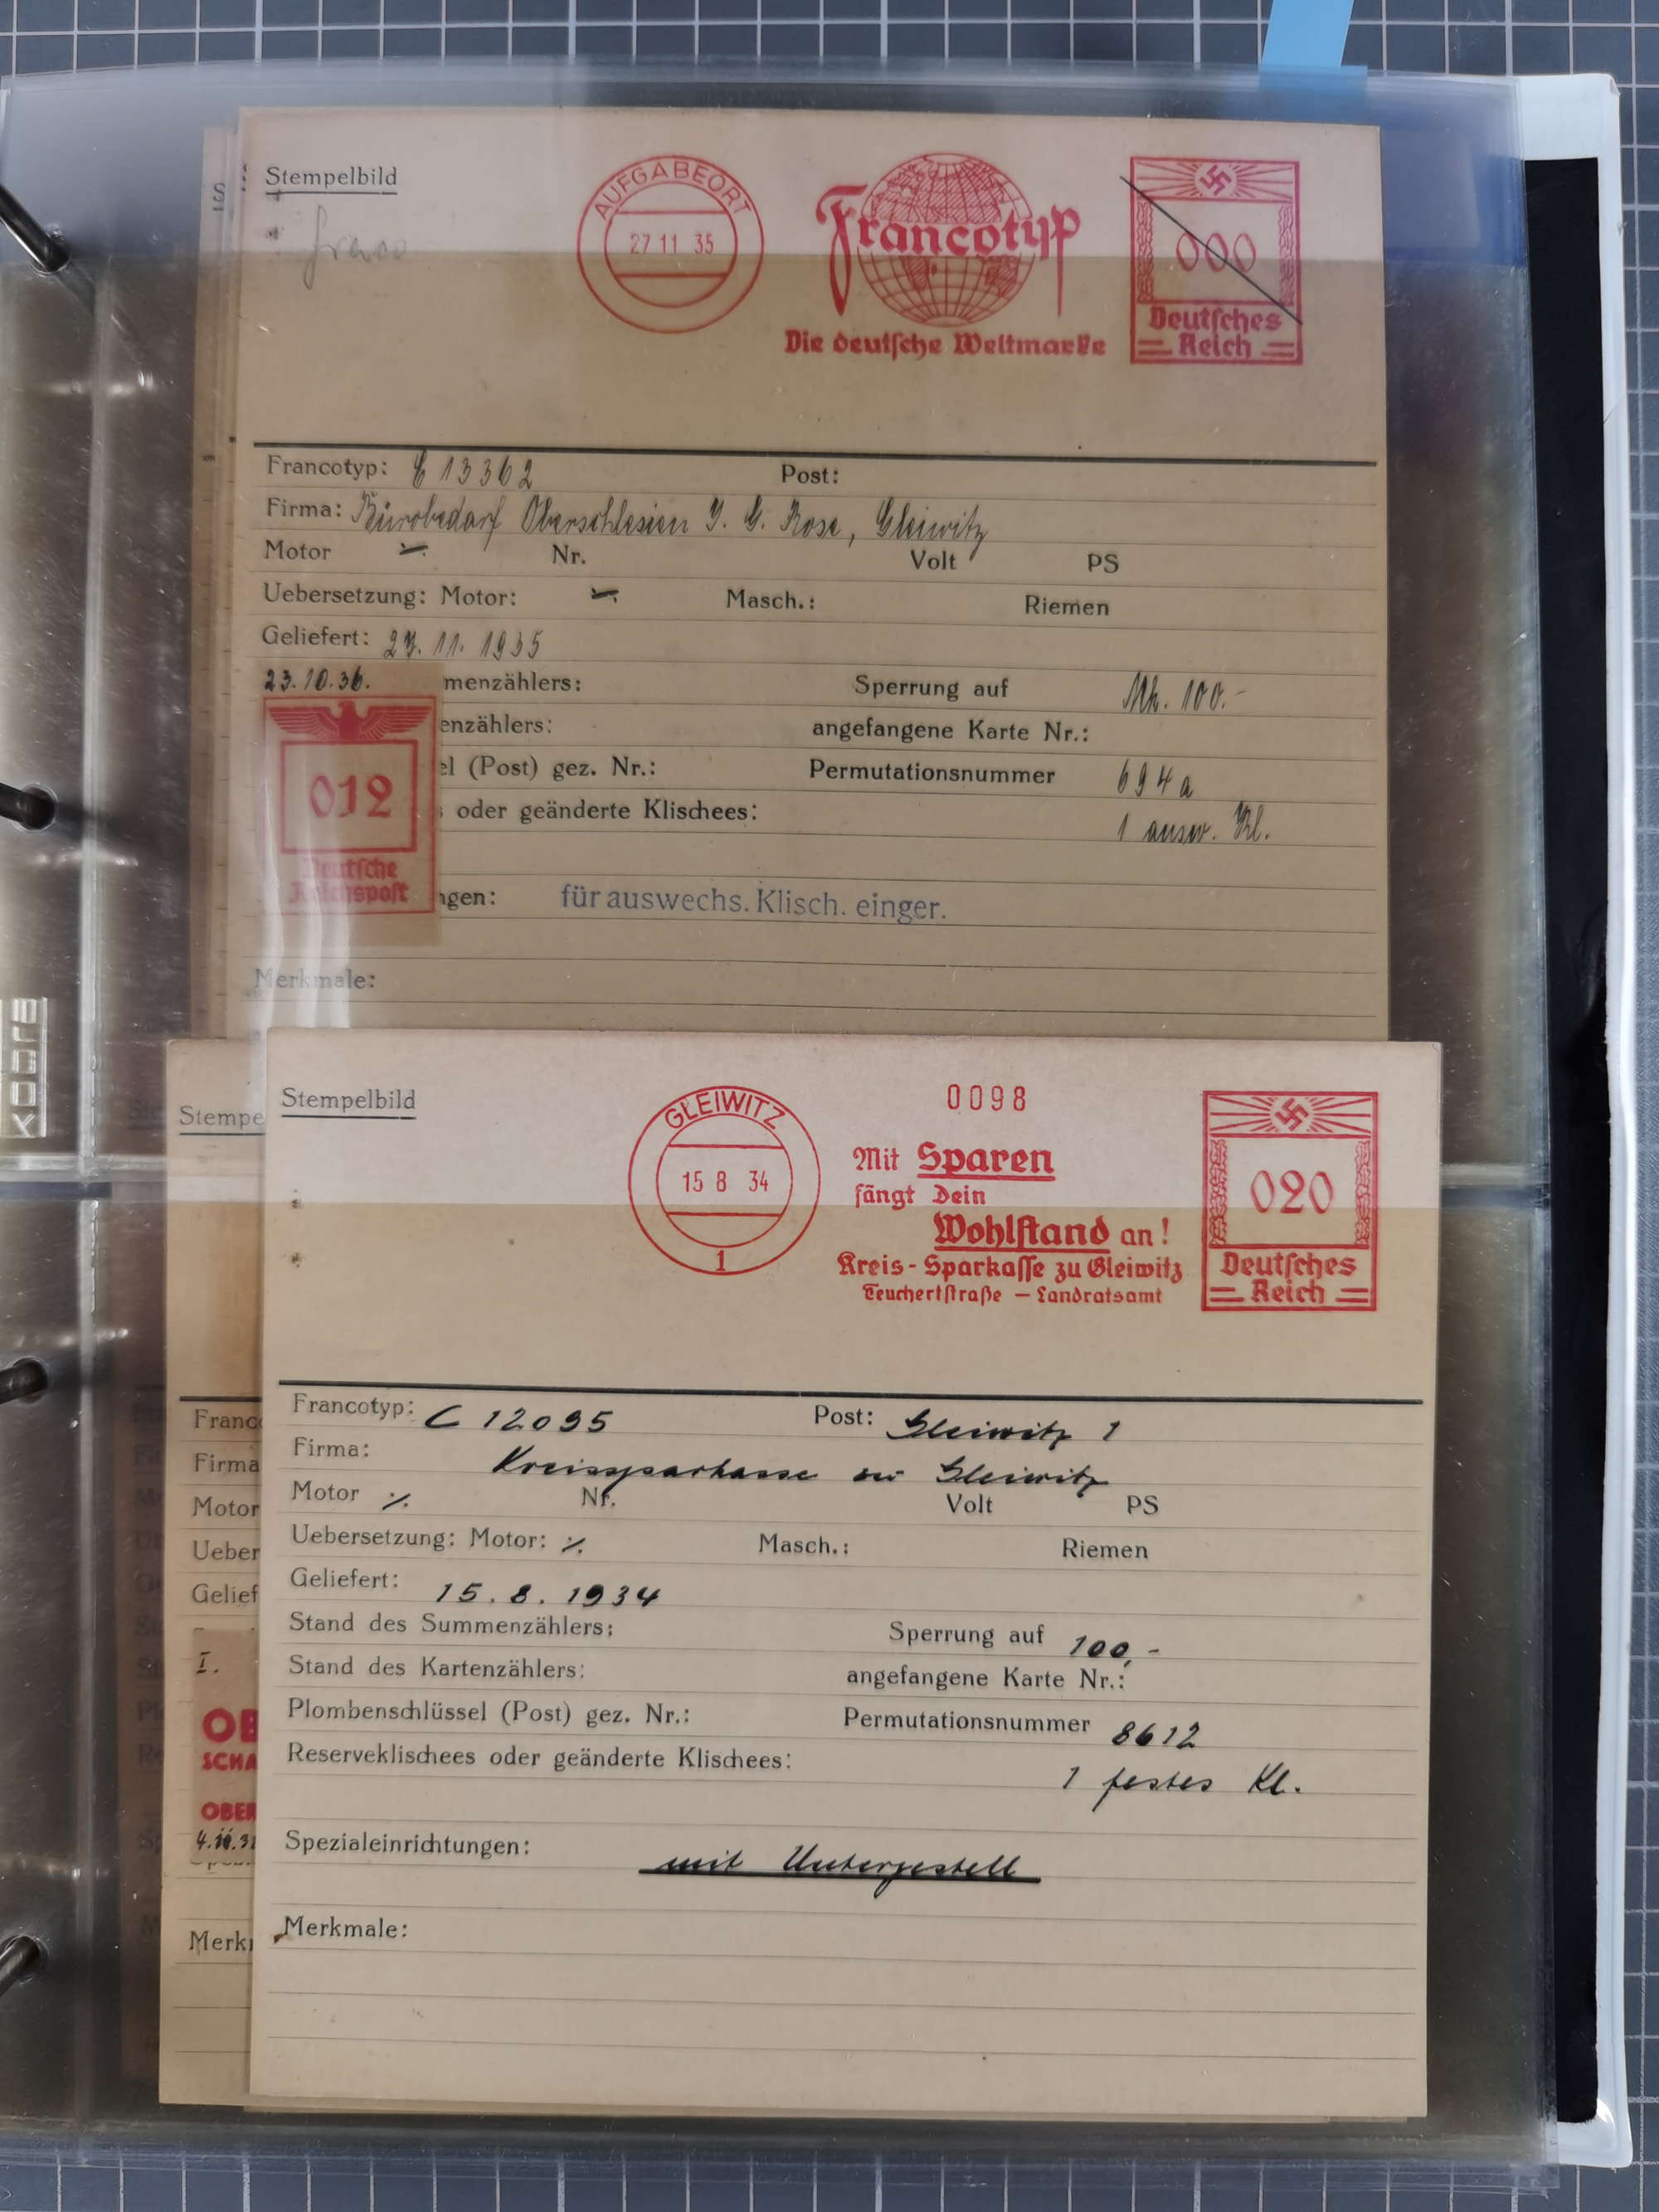 Stempelbild
AUFGABEORT
27 11 35
Francotyp
Die deutsche Weltmarke
000
Deutsches
Reich
Francotyp: C 13362 Post:
Firma: Bürobedarf Oberschlesien J. G. Rose, Gleiwitz
Motor ⁒ Nr. Volt PS
Uebersetzung: Motor: ⁒ Masch.: Riemen
Geliefert: 27. 11. 1935
23.10.36. menzählers: Sperrung auf Mk. 100.-
enzählers: angefangene Karte Nr.:
el (Post) gez. Nr.: Permutationsnummer 694a
012
oder geänderte Klischees: 1 ausw. Kl.
Deutsche
Reichspost
ngen: für auswechs. Klisch. einger.
Merkmale:
Stempelbild
GLEIWITZ
15 8 34
1
0098
Mit Sparen
fängt Dein
Wohlstand an!
Kreis-Sparkasse zu Gleiwitz
Teuchertstraße – Landratsamt
020
Deutsches
Reich
Francotyp: C 12095 Post: Gleiwitz 1
Firma: Kreissparkasse zu Gleiwitz
Motor ⁒ Nr. Volt PS
Uebersetzung: Motor: ⁒ Masch.: Riemen
Geliefert: 15.8.1934
Stand des Summenzählers: Sperrung auf 100,-
Stand des Kartenzählers: angefangene Karte Nr.:
Plombenschlüssel (Post) gez. Nr.: Permutationsnummer 8612
Reserveklischees oder geänderte Klischees: 1 festes Kl.
Spezialeinrichtungen: mit Untergestell
Merkmale:
Stempe
Franc
Firma
Motor
Ueber
Gelief
I.
OB
SCHA
OBER
Merk